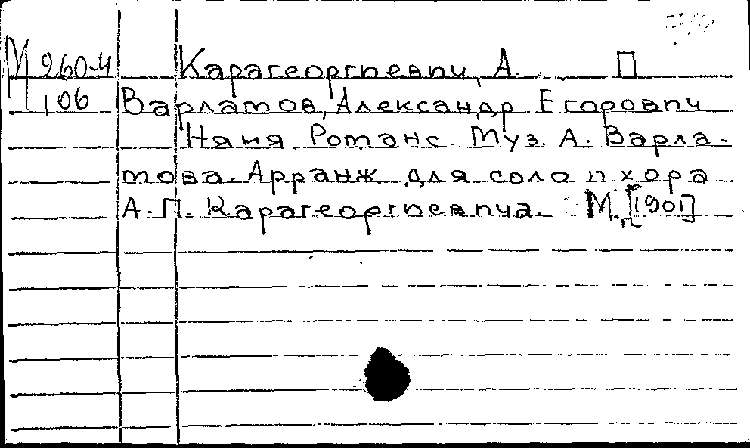 М 260-4 Карагеоргиевич, А. П
106 Варламов, Александр Егорович
Няня. Романс. Муз. А. Варла-
мова. Арранж. для соло и хора
А. П. Карагеоргиевича. М., [1901]